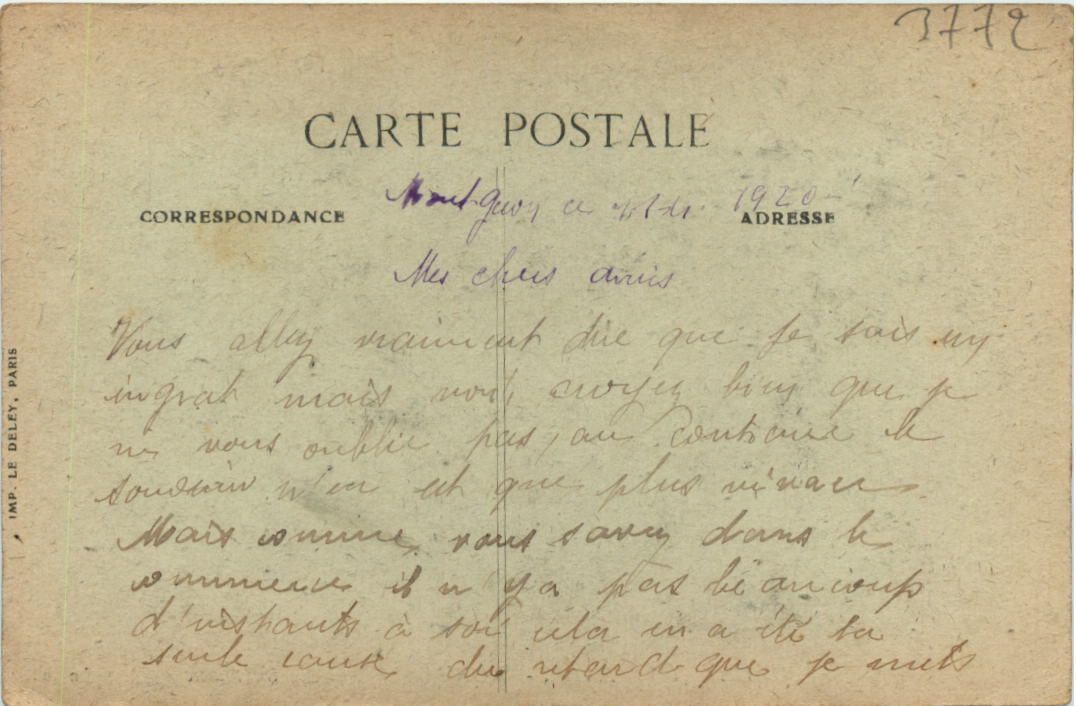 3772
CARTE POSTALE
CORRESPONDANCE
ADRESSE
ce 1920
Mes chers amis
Vous allez vraiment dire que je suis un
ingrat mais vous croyez bien que je
ne vous oublie pas, au contraire le
souvenir n'en est que plus vivace.
Mais comme vous savez dans le
commerce il n'y a pas beaucoup
d'instants à soi cela en a été la
seule cause du retard que je mets
IMP. LE DELEY, PARIS